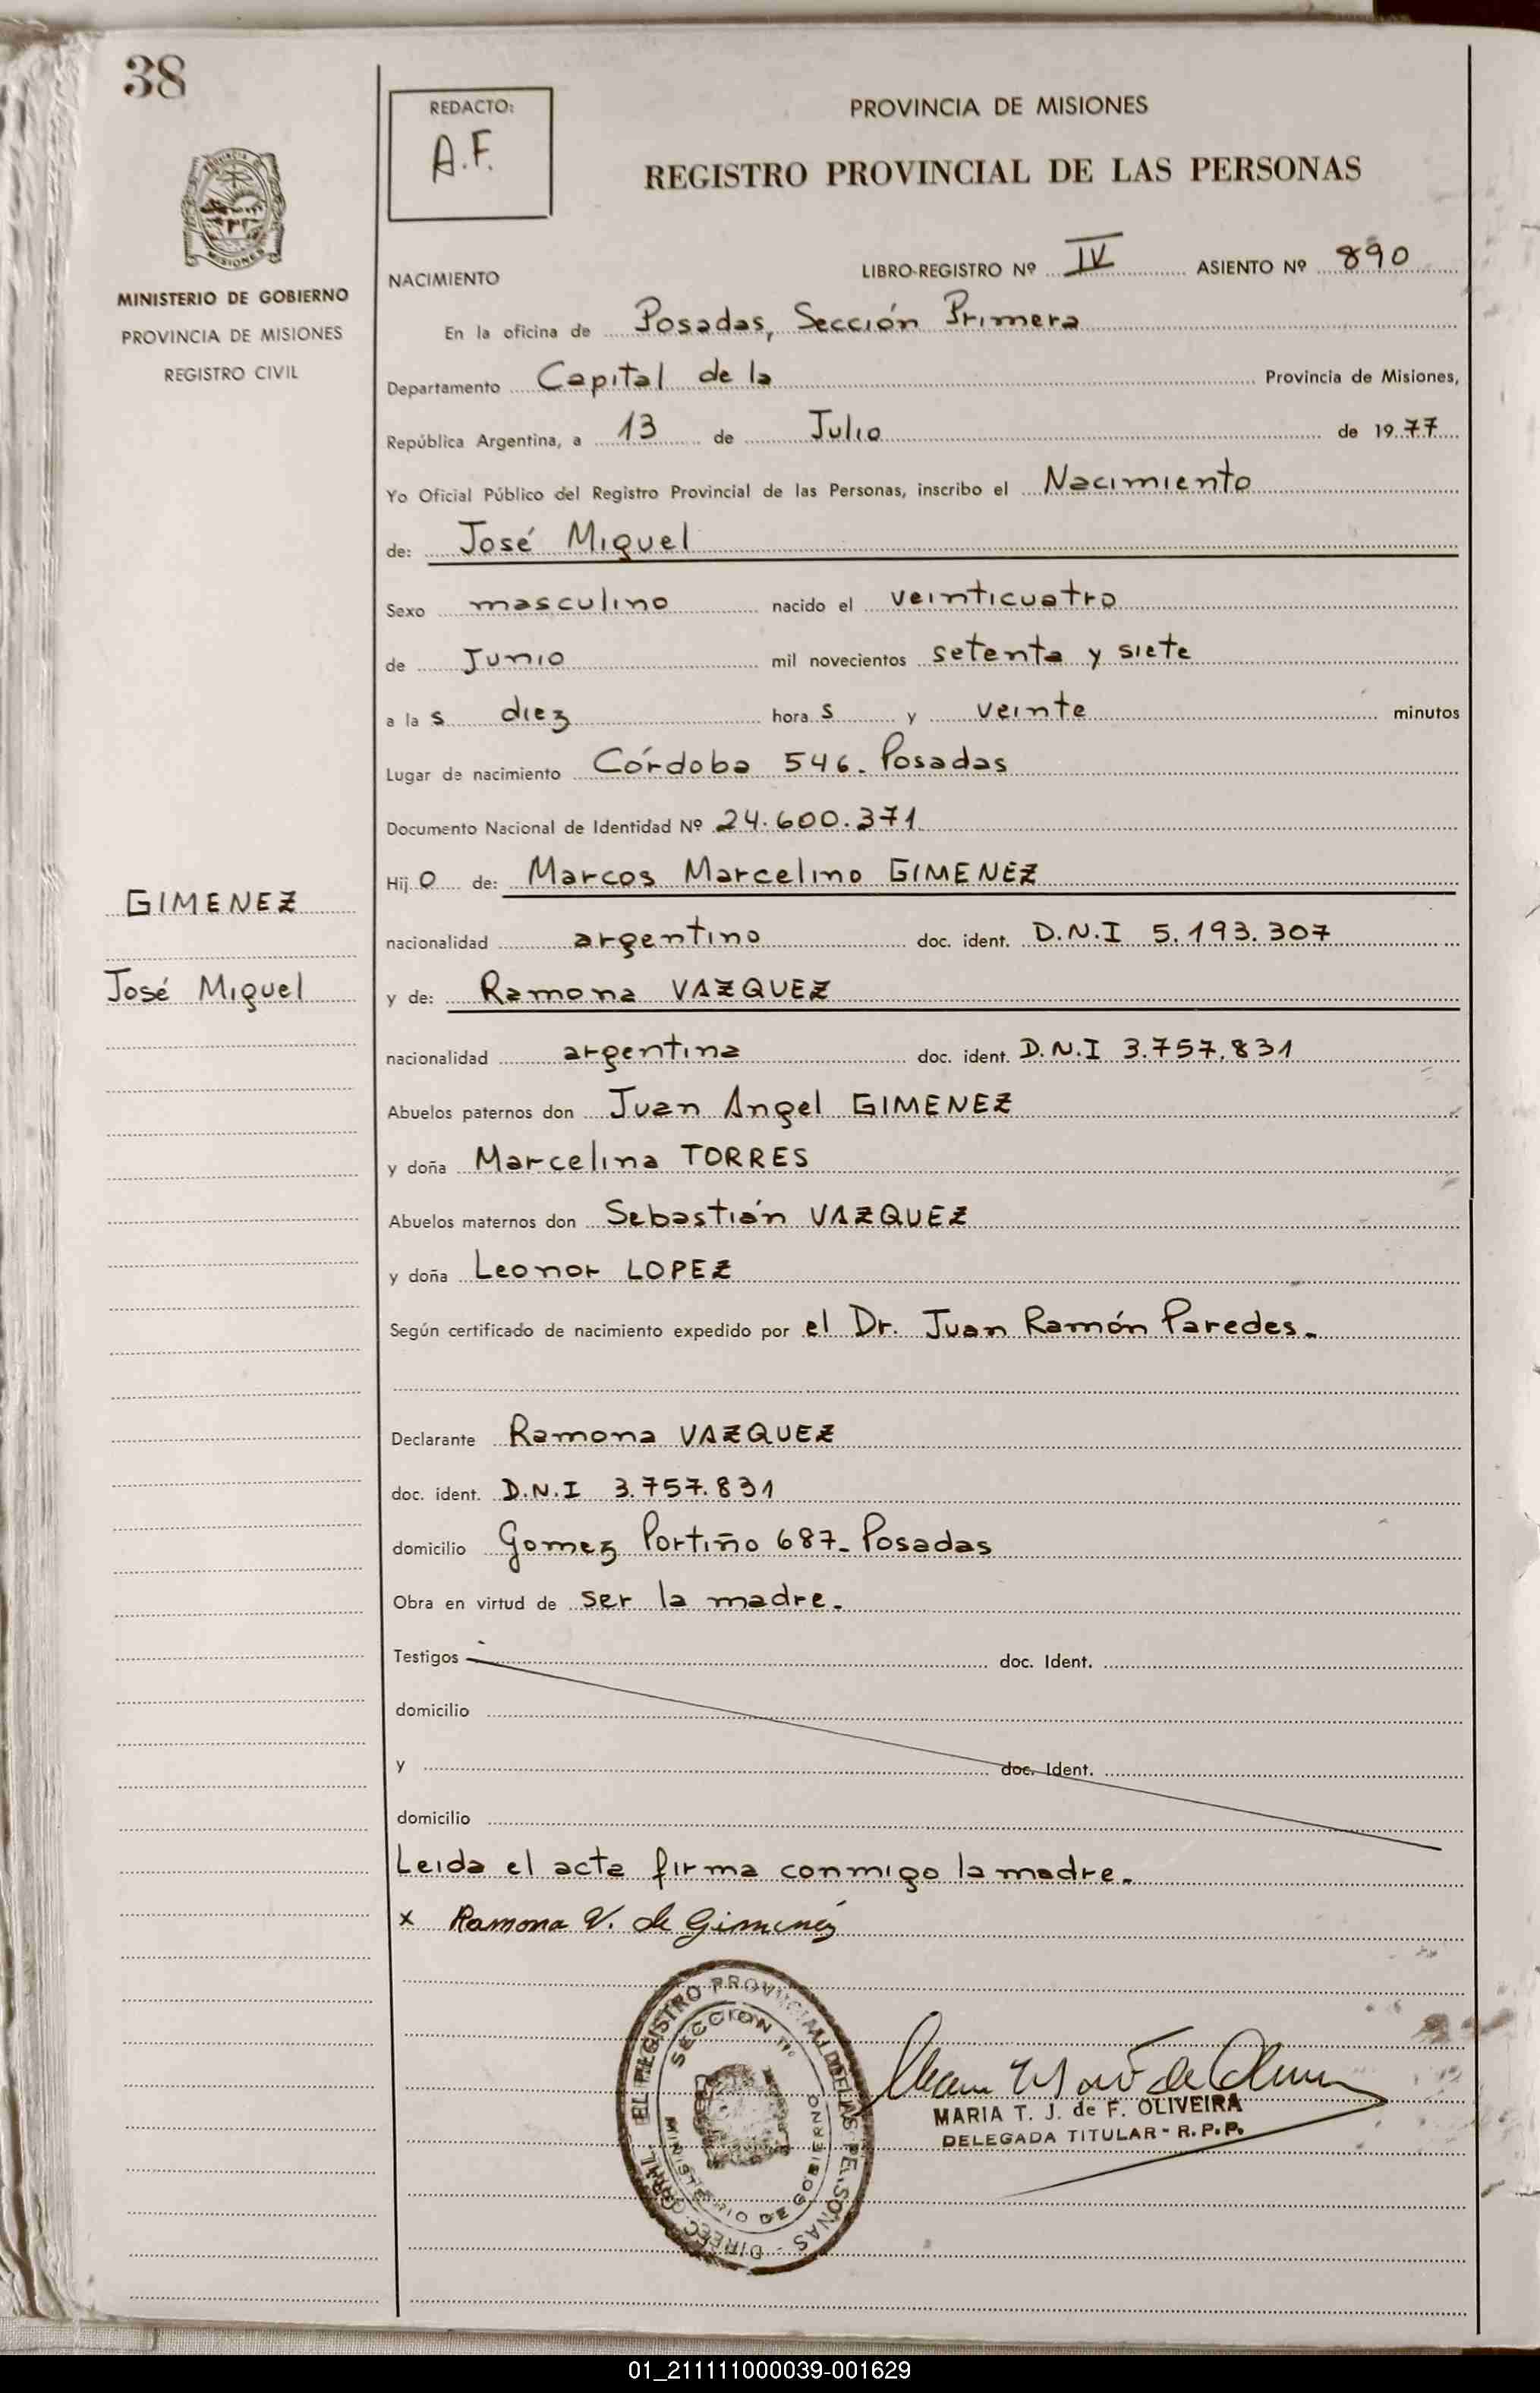 38
REDACTO:
A.F.
PROVINCIA DE MISIONES
REGISTRO PROVINCIAL DE LAS PERSONAS
MISIONES
MINISTERIO DE GOBIERNO
PROVINCIA DE MISIONES
REGISTRO CIVIL
NACIMIENTO LIBRO-REGISTRO Nº IV ASIENTO Nº 890
En la oficina de Posadas, Sección Primera
Departamento Capital de la Provincia de Misiones,
República Argentina, a 13 de Julio de 1977
Yo Oficial Público del Registro Provincial de las Personas, inscribo el Nacimiento
de: José Miguel
Sexo masculino nacido el veinticuatro
de Junio mil novecientos setenta y siete
a la s diez hora s y veinte minutos
Lugar de nacimiento Córdoba 546. Posadas
Documento Nacional de Identidad Nº 24.600.371
Hij o de: Marcos Marcelino GIMENEZ
GIMENEZ
nacionalidad argentino doc. ident. D.N.I 5.193.307
José Miguel
y de: Ramona VAZQUEZ
nacionalidad argentina doc. ident. D.N.I 3.757.831
Abuelos paternos don Juan Angel GIMENEZ
y doña Marcelina TORRES
Abuelos maternos don Sebastián VAZQUEZ
y doña Leonor LOPEZ
Según certificado de nacimiento expedido por el Dr. Juan Ramón Paredes.
Declarante Ramona VAZQUEZ
doc. ident. D.N.I 3.757.831
domicilio Gomez Portiño 687- Posadas
Obra en virtud de ser la madre.
Testigos doc. Ident.
domicilio
y doc. Ident.
domicilio
Leida el acta firma conmigo la madre.
x Ramona V. de Gimenéz
DIREC. GRAL. EL REGISTRO PROVINCIAL DE LAS PERSONAS
SECCION
MINISTERIO DE GOBIERNO
MARIA T. J. de F. OLIVEIRA
DELEGADA TITULAR - R.P.P.
01_211111000039-001629